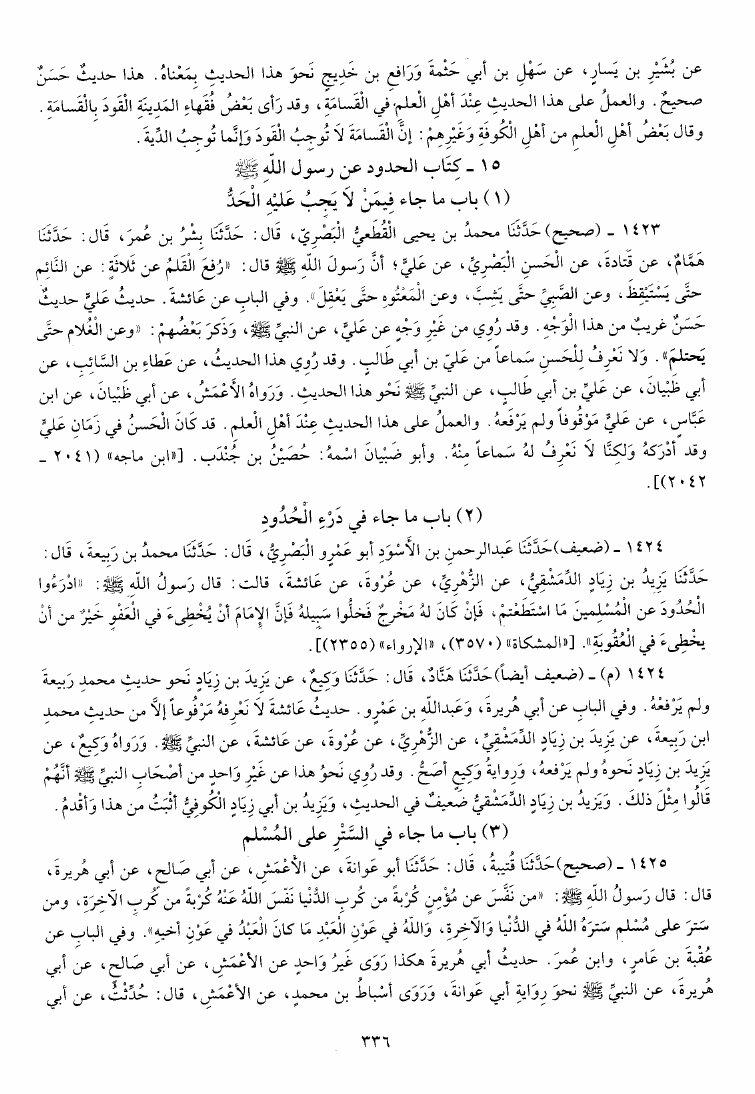 عن بُشَيْرِ بن يَسارٍ، عن سَهْلِ بن أبي حَثْمةَ وَرَافعِ بن خَديجٍ نَحوَ هذا الحديثِ بِمَعْناهُ. هذا حديثٌ حَسَنٌ
صحيحٌ. والعملُ على هذا الحديثِ عِنْدَ أهْلِ العلمِ في القَسامَةِ، وقد رَأى بَعْضُ فُقَهاءِ المَدِينَةِ القَودَ بِالْقَسامَةِ.
وقال بَعْضُ أهْلِ العلمِ من أهْلِ الْكُوفَةِ وَغَيْرِهِمْ: إنَّ القَسامَةَ لَا تُوجِبُ القَودَ وَإنَّما تُوجِبُ الدِّيةَ.
١٥ - كِتَاب الحدود عن رسول اللّهِ ﷺ
(١) باب ما جاء فِيمَنْ لَا يَجِبُ عَليْهِ الْحَدُّ
١٤٢٣ - (صحيح) حَدَّثَنَا محمدُ بن يحيى القُطَعيُّ الْبَصْرِيّ، قال: حَدَّثَنَا بِشْرُ بن عُمرَ، قال: حَدَّثَنَا
هَمَّامٌ، عن قَتادةَ، عن الْحَسنِ الْبَصْرِيِّ، عن عَليٍّ؛ أنَّ رَسولَ اللّهِ ﷺ قال: «رُفعَ الْقَلمُ عن ثَلاثَةٍ: عن النَّائِمِ
حتَّى يَسْتَيْقِظَ، وعن الصَّبيِّ حتَّى يَشِبَّ، وعن الْمَعْتُوهِ حتَّى يَعْقِلَ». وفي البابِ عن عَائشةَ. حديثُ عَليٍّ حديثٌ
حَسَنٌ غريبٌ من هذا الْوَجْهِ. وقد رُوِي من غَيْرِ وَجْهٍ عن عَليٍّ، عن النبيِّ ﷺ، وَذكرَ بَعْضُهمْ: «وعن الْغُلامِ حتَّى
يَحتلمَ». وَلَا نَعْرِفُ لِلْحَسنِ سَماعاً من عَليِّ بن أبي طَالبٍ. وقد رُوِي هذا الحديثُ، عن عَطاءِ بن السَّائبِ، عن
أبي ظَبْيانَ، عن عَليِّ بن أبي طَالبٍ، عن النبيِّ ﷺ نَحْو هذا الحديثِ. وَرَواهُ الأعْمَشُ، عن أبي ظَبْيانَ، عن ابن
عَبَّاسٍ، عن عَليٍّ مَوْقُوفاً ولم يَرْفَعهُ. والعملُ على هذا الحديثِ عِنْدَ أهْلِ العلمِ. قد كَانَ الْحَسنُ في زَمَانِ عَليٍّ
وقد أدْرَكهُ وَلكِنَّا لَا نَعْرِفُ لهُ سَماعاً مِنْهُ. وأبو ضَبْيانَ اسْمهُ: حُصَيْنُ بن جُنْدَب. [«ابن ماجه» (٢٠٤١ -
٢٠٤٢)].
(٢) باب ما جاء في دَرْءِ الْحُدُودِ
١٤٢٤ - (ضعيف) حَدَّثَنَا عَبدالرحمنِ بن الأَسْوَدِ أبو عَمْرٍو الْبَصْرِيُّ، قال: حَدَّثَنَا محمدُ بن رَبِيعةَ، قال:
حَدَّثَنَا يَزِيدُ بن زِيَادٍ الدِّمَشْقِيُّ، عن الزُّهْرِيِّ، عن عُرْوةَ، عن عَائشةَ، قالت: قال رَسولُ اللّهِ ﷺ: «ادْرَءُوا
الْحُدُودَ عن الْمُسْلمينَ مَا اسْتَطَعْتمْ، فَإنْ كَانَ لهُ مَخْرجٌ فَخلُّوا سَبِيلهُ فَإنَّ الإِمَامَ أنْ يُخْطِىءَ في الْعَفْوِ خَيْرٌ من أنْ
يخْطِىءَ في الْعُقُوبَةِ». [«المشكاة» (٣٥٧٠)، «الإرواء» (٢٣٥٥)].
١٤٢٤ (م) - (ضعيف أيضاً) حَدَّثَنَا هَنَّادٌ، قال: حَدَّثَنَا وَكِيعٌ، عن يَزِيدَ بن زِيَادٍ نحو حديثِ محمدِ رَبِيعةَ
ولم يَرْفَعْهُ. وفي البابِ عن أبي هُريرةَ، وَعَبداللّهِ بن عَمْرٍو. حديثُ عَائشةَ لَا نَعْرِفهُ مَرْفُوعاً إلَّا من حديثِ محمدِ
ابن رَبِيعةَ، عن يَزِيدَ بن زِيَادٍ الدِّمَشْقِيِّ، عن الزُّهْرِيِّ، عن عُرْوةَ، عن عَائشةَ، عن النبيِّ ﷺ. وَرَواهُ وَكِيعٌ، عن
يَزِيدَ بن زِيَادٍ نَحوهُ ولم يَرْفعهُ، وَرِوايةُ وَكِيعٍ أصَحُّ. وقد رُوِي نَحوُ هذا عن غَيْرِ وَاحدٍ من أصْحَابِ النبيِّ ﷺ أنَّهُمْ
قَالُوا مِثْلَ ذلكَ. وَيَزيدُ بن زِيَادٍ الدِّمَشْقيُّ ضَعيفٌ في الحديثِ، وَيَزِيدُ بن أبي زِيَادٍ الْكُوفِيُّ أثْبَتُ من هذا وَأقْدمُ.
(٣) باب ما جاء في السَّتْرِ على المُسْلم
١٤٢٥ - (صحيح) حَدَّثَنَا قُتيبةُ، قال: حَدَّثَنَا أبو عَوانةَ، عن الأعْمَشِ، عن أبي صَالحٍ، عن أبي هُريرةَ،
قال: قال رَسولُ اللّهِ ﷺ: «من نَفَّسَ عن مُؤْمنٍ كُرْبةً من كُربِ الدُّنْيا نَفّسَ اللّهُ عَنْهُ كُرْبةً من كُربِ الآخِرَةِ، ومن
سَترَ على مُسْلمٍ سَترَهُ اللّهُ في الدُّنْيا وَالآخِرةِ، وَاللّهُ في عَوْنِ الْعَبْدِ مَا كانَ الْعَبْدُ في عَوْنِ أخيهِ». وفي البابِ عن
عُقْبةَ بن عَامرٍ، وابن عُمرَ. حديثُ أبي هُريرةَ هكذا رَوَى غَيرُ وَاحدٍ عن الأعْمَشِ، عن أبي صَالحٍ، عن أبي
هُريرةَ، عن النبيِّ ﷺ نحوَ رِوَايةِ أبي عَوانةَ، وَرَوَى أسْباطُ بن محمدٍ، عن الأعْمَشِ، قال: حُدِّثْتُ، عن أبي
٣٣٦